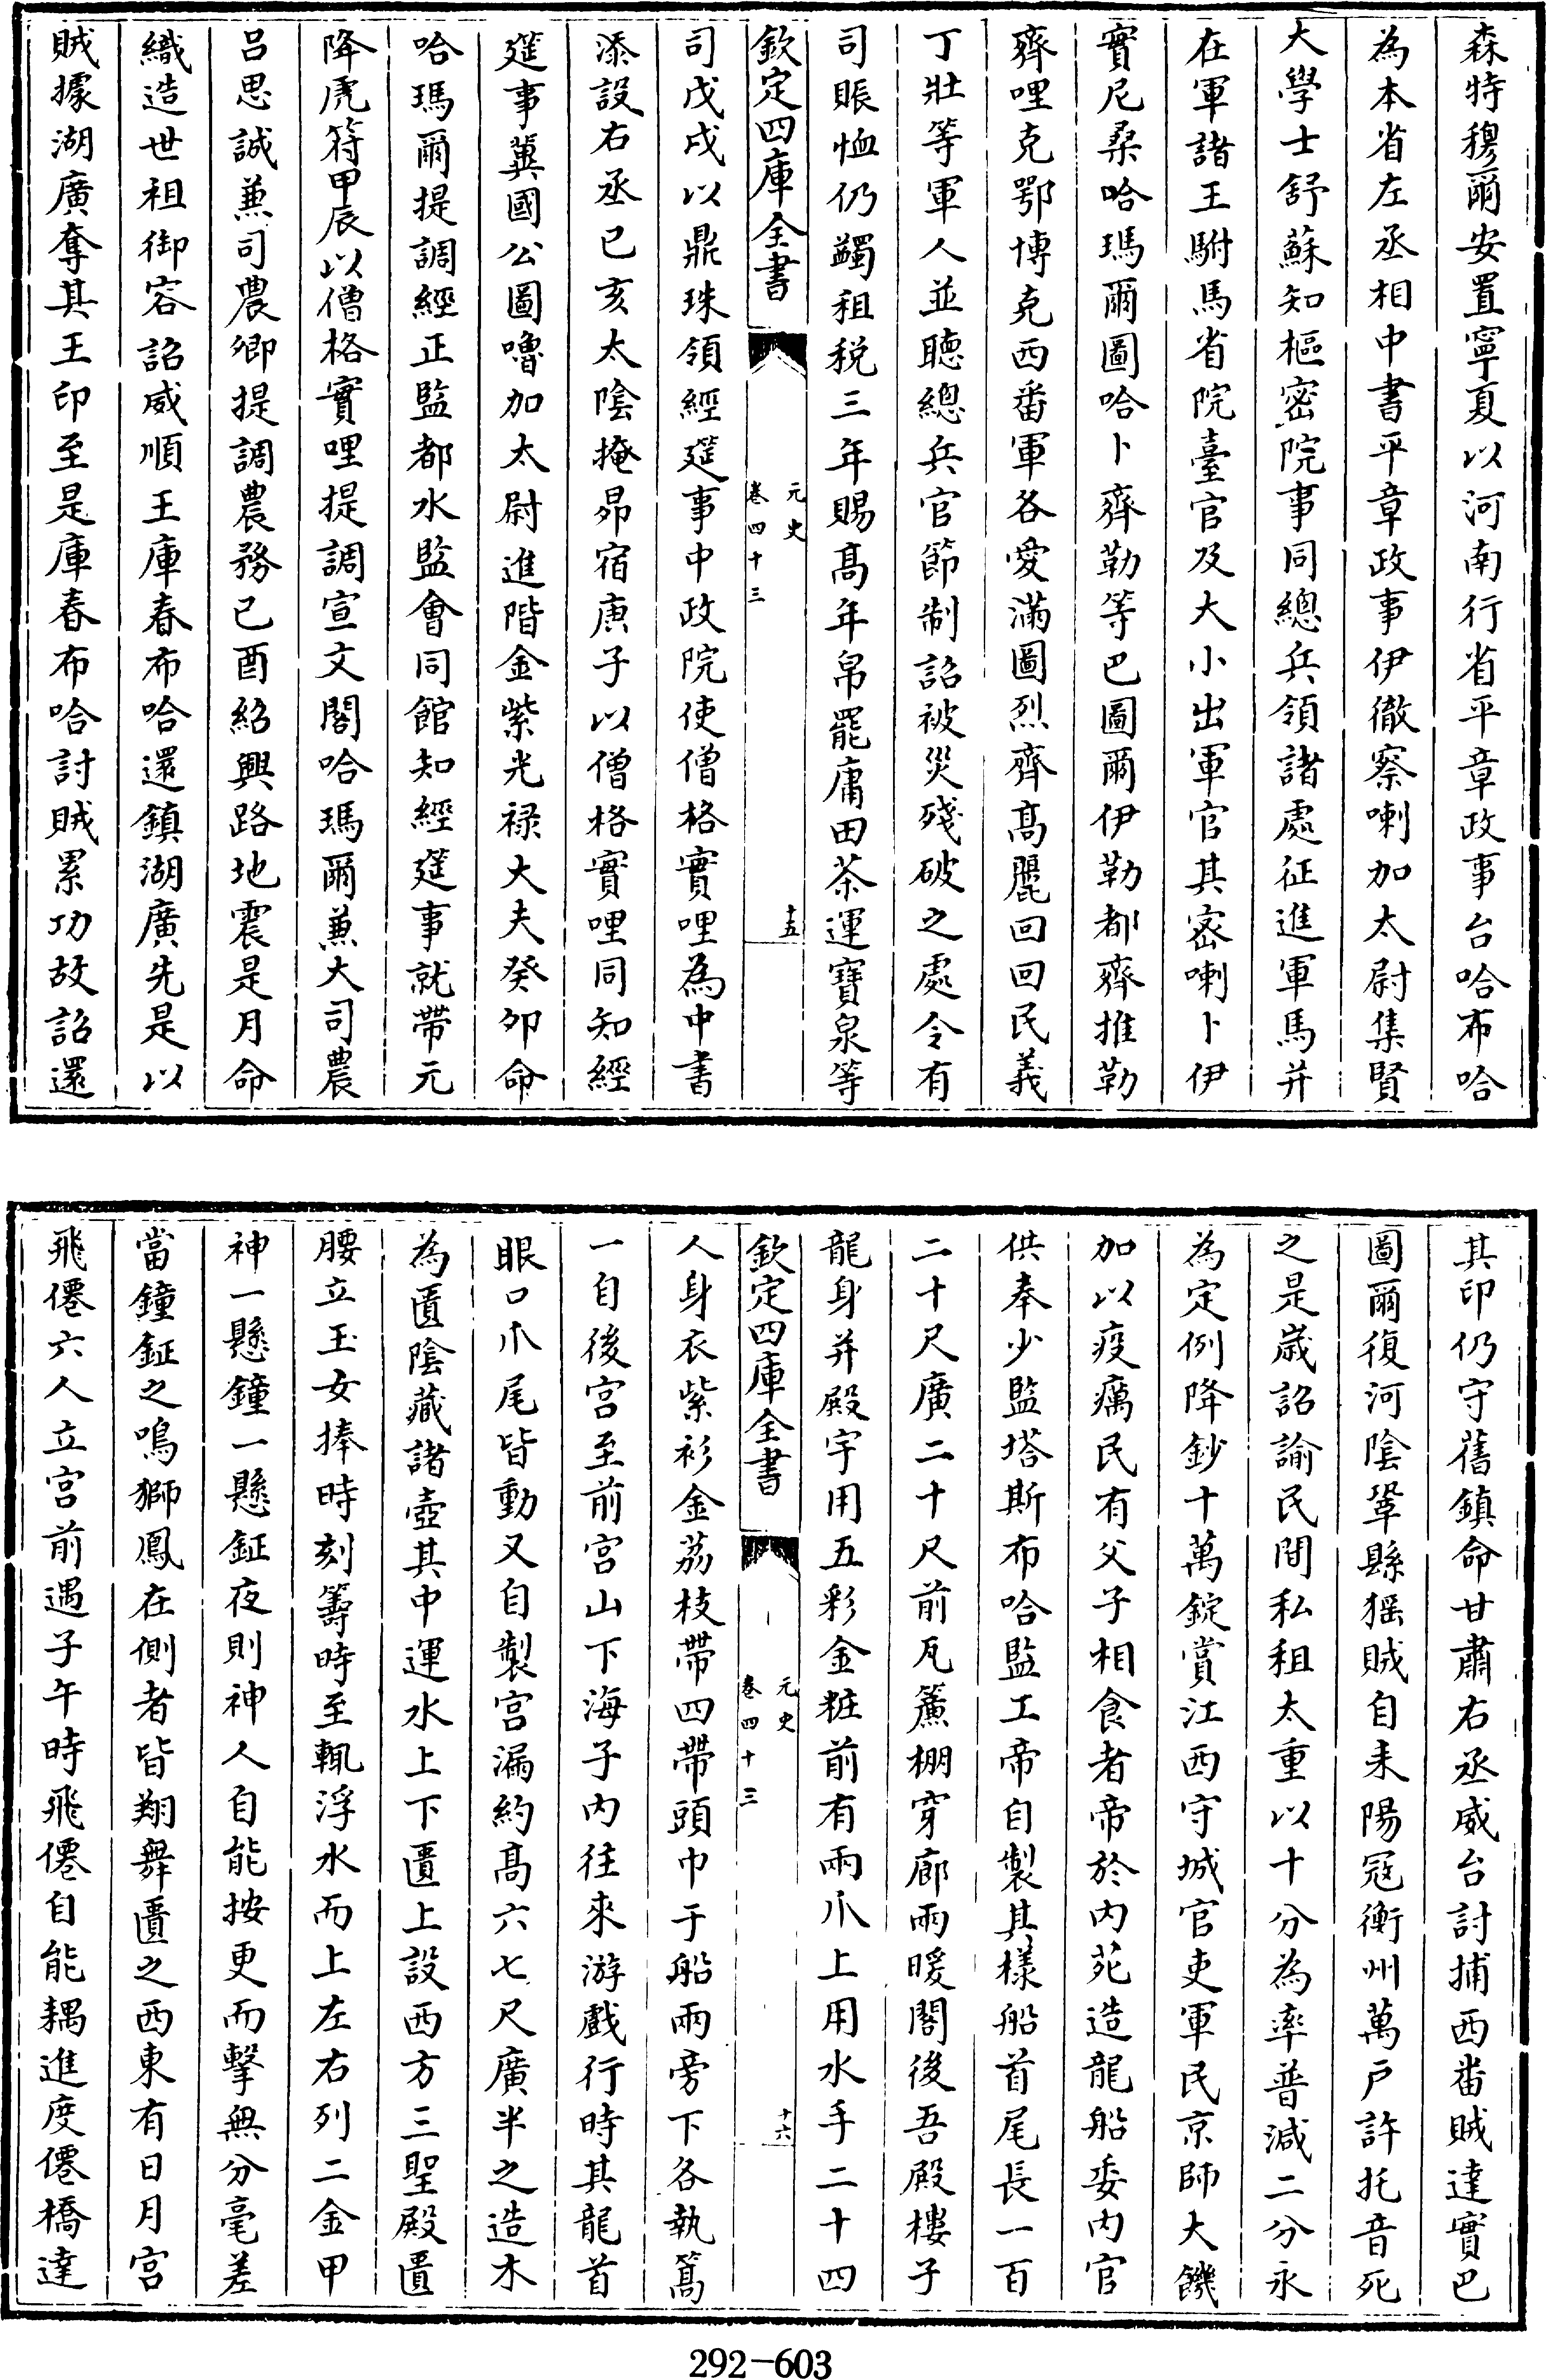 森特穆爾安置寧夏以河南行省平章政事台哈布哈
為本省左丞相中書平章政事伊徹察喇加太尉集賢
大學士舒蘇知樞密院事同總兵領諸處征進軍馬并
在軍諸王駙馬省院臺官及大小出軍官其密喇卜伊
實尼桑哈瑪爾圖哈卜齊勒等巴圖爾伊勒都齊推勒
齊哩克鄂博克西番軍各愛滿圖烈齊髙麗回回民義
丁壯等軍人並聽總兵官節制詔被災殘破之處令有
司賑恤仍蠲租税三年賜髙年帛罷庸田茶運寶泉等
欽定四庫全書
元史
卷四十三
十五
司戊戌以鼎珠領經筵事中政院使僧格實哩為中書
添設右丞己亥太陰掩昴宿庚子以僧格實哩同知經
筵事冀國公圖嚕加太尉進階金紫光禄大夫癸卯命
哈瑪爾提調經正監都水監會同館知經筵事就帶元
降虎符甲辰以僧格實哩提調宣文閣哈瑪爾兼大司農
吕思誠兼司農卿提調農務己酉紹興路地震是月命
織造世祖御容詔威順王庫春布哈還鎮湖廣先是以
賊據湖廣奪其王印至是庫春布哈討賊累功故詔還
其印仍守舊鎮命甘肅右丞威台討捕西畨賊達實巴
圖爾復河陰鞏縣猺賊自耒陽冦衡州萬户許托音死
之是嵗詔諭民間私租太重以十分為率普減二分永
為定例降鈔十萬錠賞江西守城官吏軍民京師大饑
加以疫癘民有父子相食者帝於内苑造龍船委内官
供奉少監塔斯布哈監工帝自製其樣船首尾長一百
二十尺廣二十尺前瓦簾棚穿廊兩暖閣後吾殿樓子
龍身并殿宇用五彩金粧前有兩爪上用水手二十四
欽定四庫全書
元史
卷四十三
十六
人身衣紫衫金荔枝帶四帶頭巾于船兩旁下各執篙
一自後宫至前宫山下海子内往來游戲行時其龍首
眼口爪尾皆動又自製宫漏約髙六七尺廣半之造木
為匱陰藏諸壺其中運水上下匱上設西方三聖殿匱
腰立玉女捧時刻籌時至輒浮水而上左右列二金甲
神一懸鐘一懸鉦夜則神人自能按更而擊無分毫差
當鐘鉦之鳴獅鳳在側者皆翔舞匱之西東有日月宫
飛僊六人立宫前遇子午時飛僊自能耦進度僊橋達
292-603